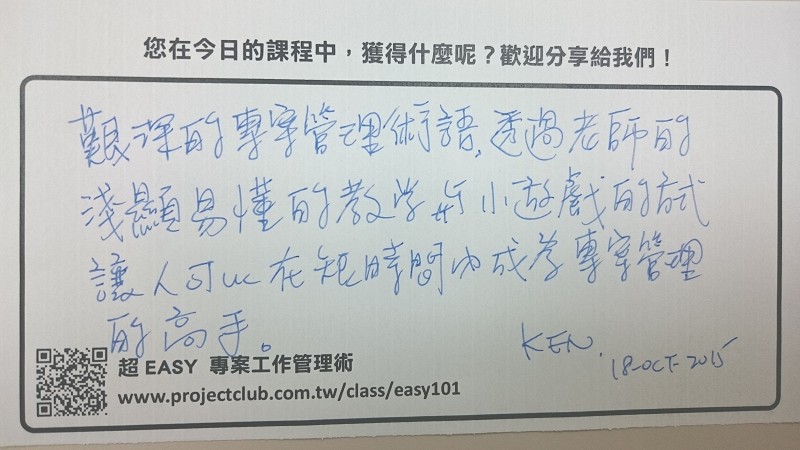 您在今日的課程中，獲得什麼呢？歡迎分享給我們！
艱深的專案管理術語，透過老師的
淺顯易懂的教学与小遊戲的方式
讓人可以在短時間內成為專案管理
的高手。
KEN.
18-OCT-2015
超 EASY 專案工作管理術
www.projectclub.com.tw/class/easy101